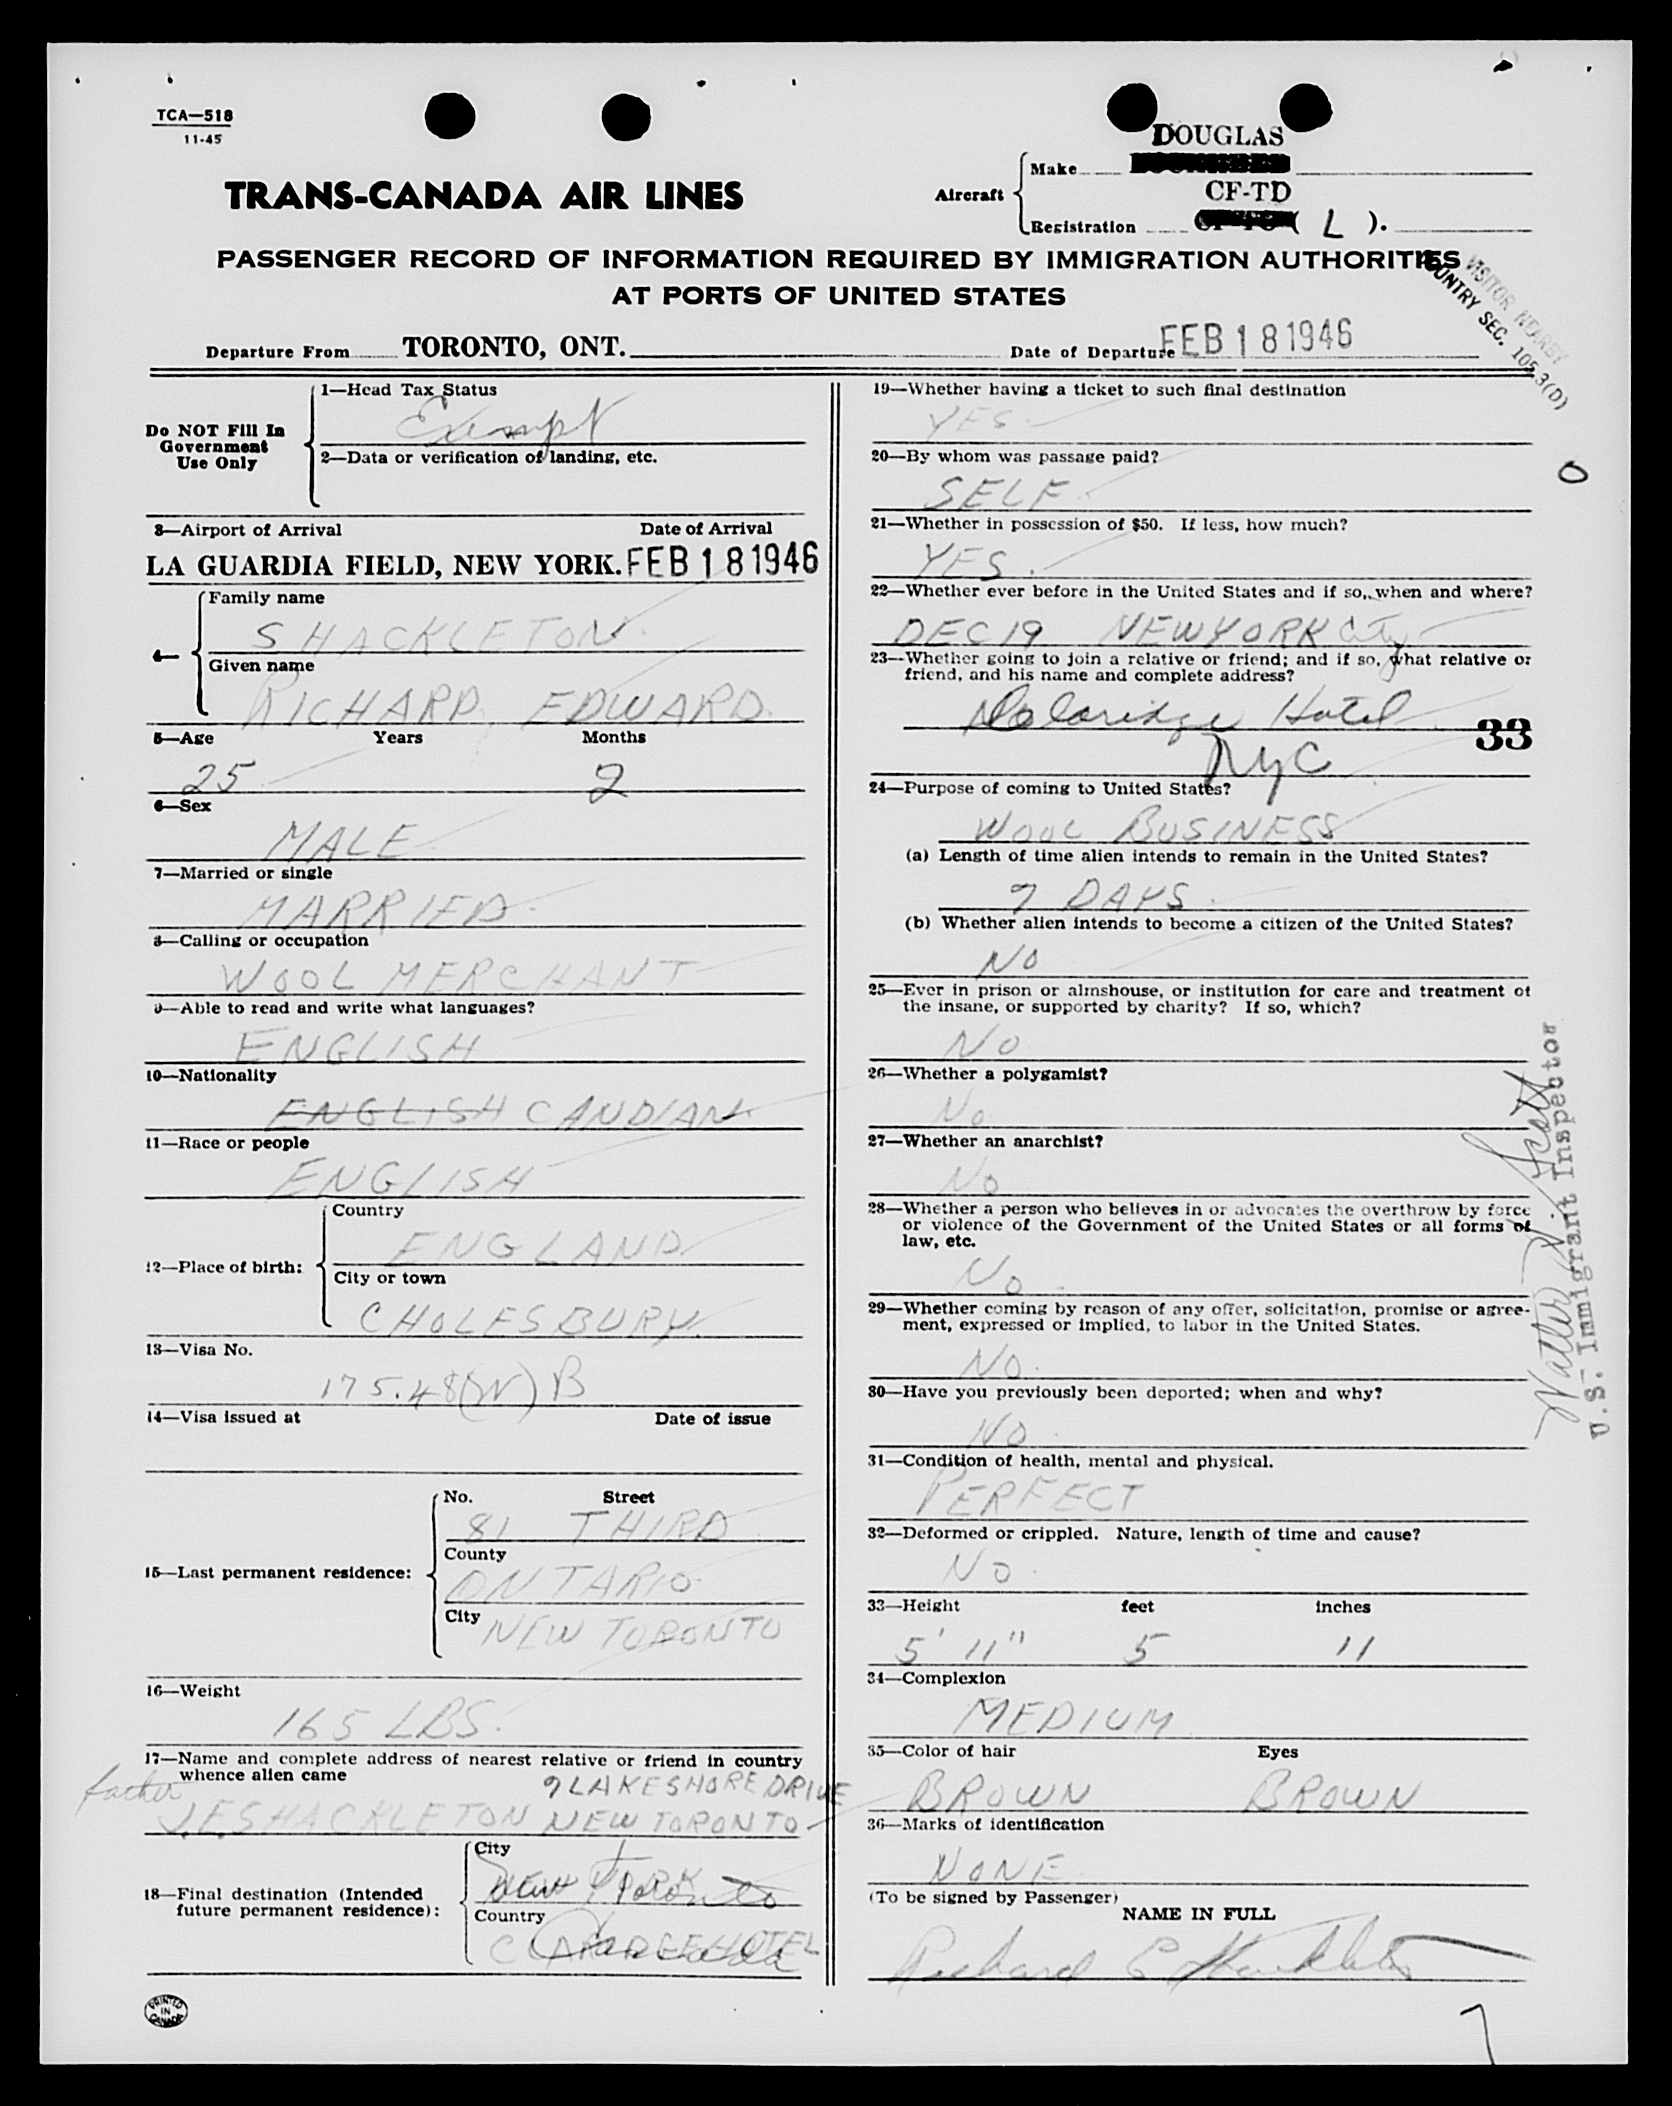 TCA—518
11-45
DOUGLAS
Aircraft
Make
CF-TD
Registration ( L ).
TRANS-CANADA AIR LINES
PASSENGER RECORD OF INFORMATION REQUIRED BY IMMIGRATION AUTHORITIES
AT PORTS OF UNITED STATES
VISITOR NEARBY
COUNTRY SEC. 105.3(D)
Departure From TORONTO, ONT. Date of Departure FEB 18 1946
Do NOT Fill In
Government
Use Only
1—Head Tax Status
Exempt
2—Data or verification of landing, etc.
3—Airport of Arrival Date of Arrival
LA GUARDIA FIELD, NEW YORK. FEB 18 1946
4—
Family name
SHACKLETON
Given name
RICHARD, EDWARD.
5—Age Years Months
25 2
6—Sex
MALE
7—Married or single
MARRIED.
8—Calling or occupation
WOOL MERCHANT
9—Able to read and write what languages?
ENGLISH
10—Nationality
ENGLISH CANDIAN.
11—Race or people
ENGLISH
12—Place of birth:
Country
ENGLAND
City or town
CHOLESBURY.
13—Visa No.
175.48(W) B
14—Visa issued at Date of issue
15—Last permanent residence:
No. Street
81 THIRD
County
ONTARIO.
City NEW TORONTO
16—Weight
165 LBS.
17—Name and complete address of nearest relative or friend in country
whence alien came
father 9 LAKESHORE DRIVE
J.E. SHACKLETON NEW TORONTO
18—Final destination (Intended
future permanent residence):
City
NEW YORK
New Toronto
Country
HOTEL
Canada
PRINTED
IN
CANADA
19—Whether having a ticket to such final destination
YES.
20—By whom was passage paid?
SELF.
21—Whether in possession of $50. If less, how much?
YES.
22—Whether ever before in the United States and if so, when and where?
DEC 19 NEW YORK City
23—Whether going to join a relative or friend; and if so, what relative or
friend, and his name and complete address?
Hotel
33
NYC
24—Purpose of coming to United States?
WOOL BUSINESS
(a) Length of time alien intends to remain in the United States?
7 DAYS.
(b) Whether alien intends to become a citizen of the United States?
NO
25—Ever in prison or almshouse, or institution for care and treatment of
the insane, or supported by charity? If so, which?
NO
26—Whether a polygamist?
No
27—Whether an anarchist?
No
28—Whether a person who believes in or advocates the overthrow by force
or violence of the Government of the United States or all forms of
law, etc.
No.
29—Whether coming by reason of any offer, solicitation, promise or agree-
ment, expressed or implied, to labor in the United States.
NO.
30—Have you previously been deported; when and why?
NO.
31—Condition of health, mental and physical.
PERFECT
32—Deformed or crippled. Nature, length of time and cause?
NO.
33—Height feet inches
5' 11" 5 11
34—Complexion
MEDIUM
35—Color of hair Eyes
BROWN BROWN
36—Marks of identification
NONE
(To be signed by Passenger)
NAME IN FULL
Richard E Shackleton
Walter Scott
U.S. Immigrant Inspector
7